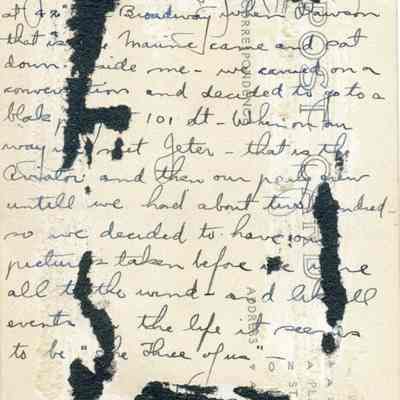 at 42nd Broadway when Dawson
that is the Marine came and sat
down beside me - we carried on a
conversation and decided to go to a
blok p 101 st - When on our
way met Jeter - that is the
Aviator and then our party grew
untill we had about two hundred -
so we decided to have our
pictures taken before we were
all to the wind - and like all
events in the life it seems
to be "The Three of us" -
POST CARD
CORRESPONDENCE
ADDRESS